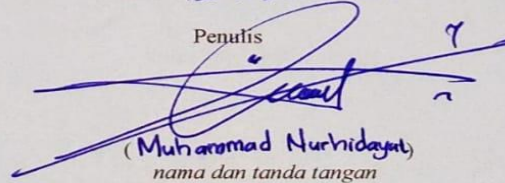 Penulis
(Muhammad Nurhidayat)
nama dan tanda tangan